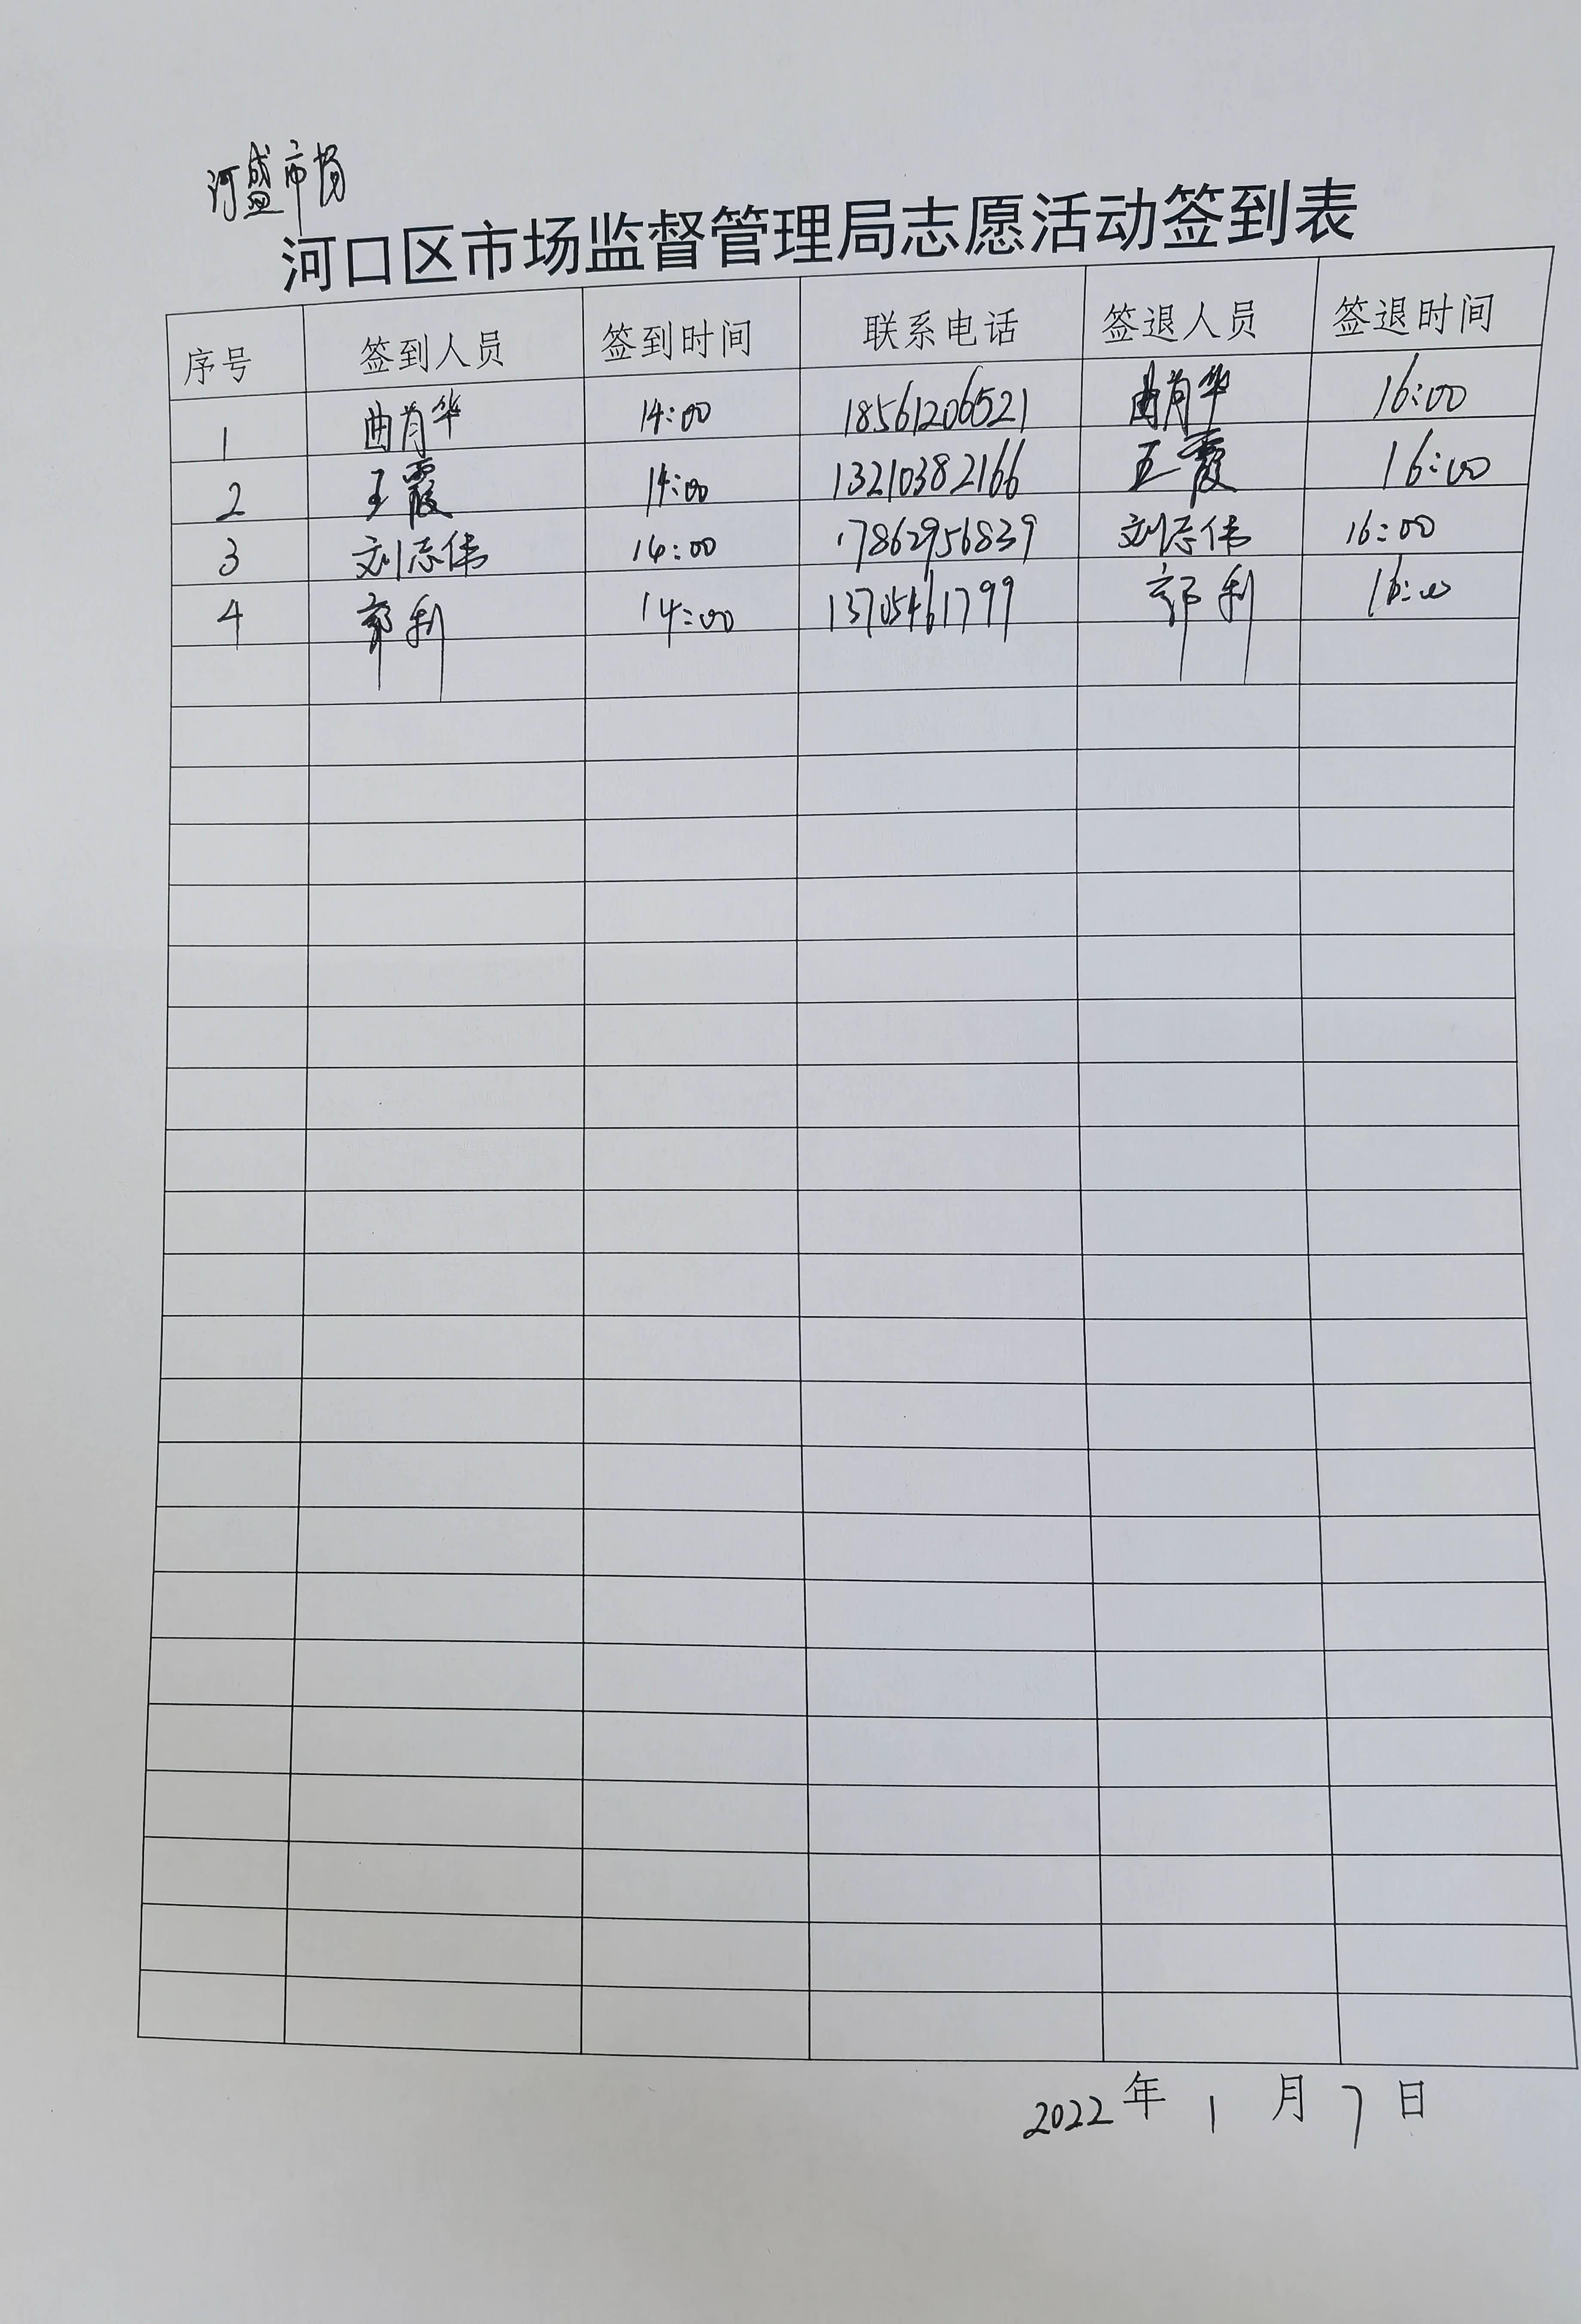 河盛市场
河口区市场监督管理局志愿活动签到表
序号 签到人员 签到时间 联系电话 签退人员 签退时间
1 曲肖华 14:00 18561206521 曲肖华 16:00
2 王霞 14:00 13210382166 王霞 16:00
3 刘志伟 14:00 17862956839 刘志伟 16:00
4 郭利 14:00 13705461799 郭利 16:00
2022年1月7日